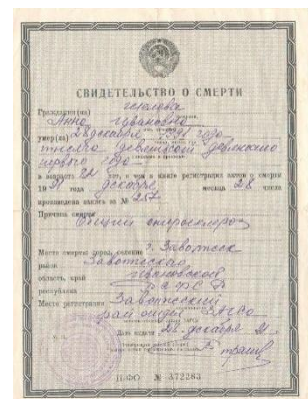 СВИДЕТЕЛЬСТВО О СМЕРТИ
Гражданин(ка)
Анна Ивановна
умер(ла) 28 декабря 1991 года
тысяча девятьсот девяносто
первого года
в возрасте лет, о чем в книге регистрации актов о смерти
19 91 года декабря месяца 28 числа
произведена запись за № 287
Причина смерти
Общий
Место смерти: город, селение г. Заволжск
район Заволжский
область, край Ивановской
республика РСФСР
Место регистрации Заволжский
рай отдел ЗАГСа
Дата выдачи 28 декабря 91
№ 372283